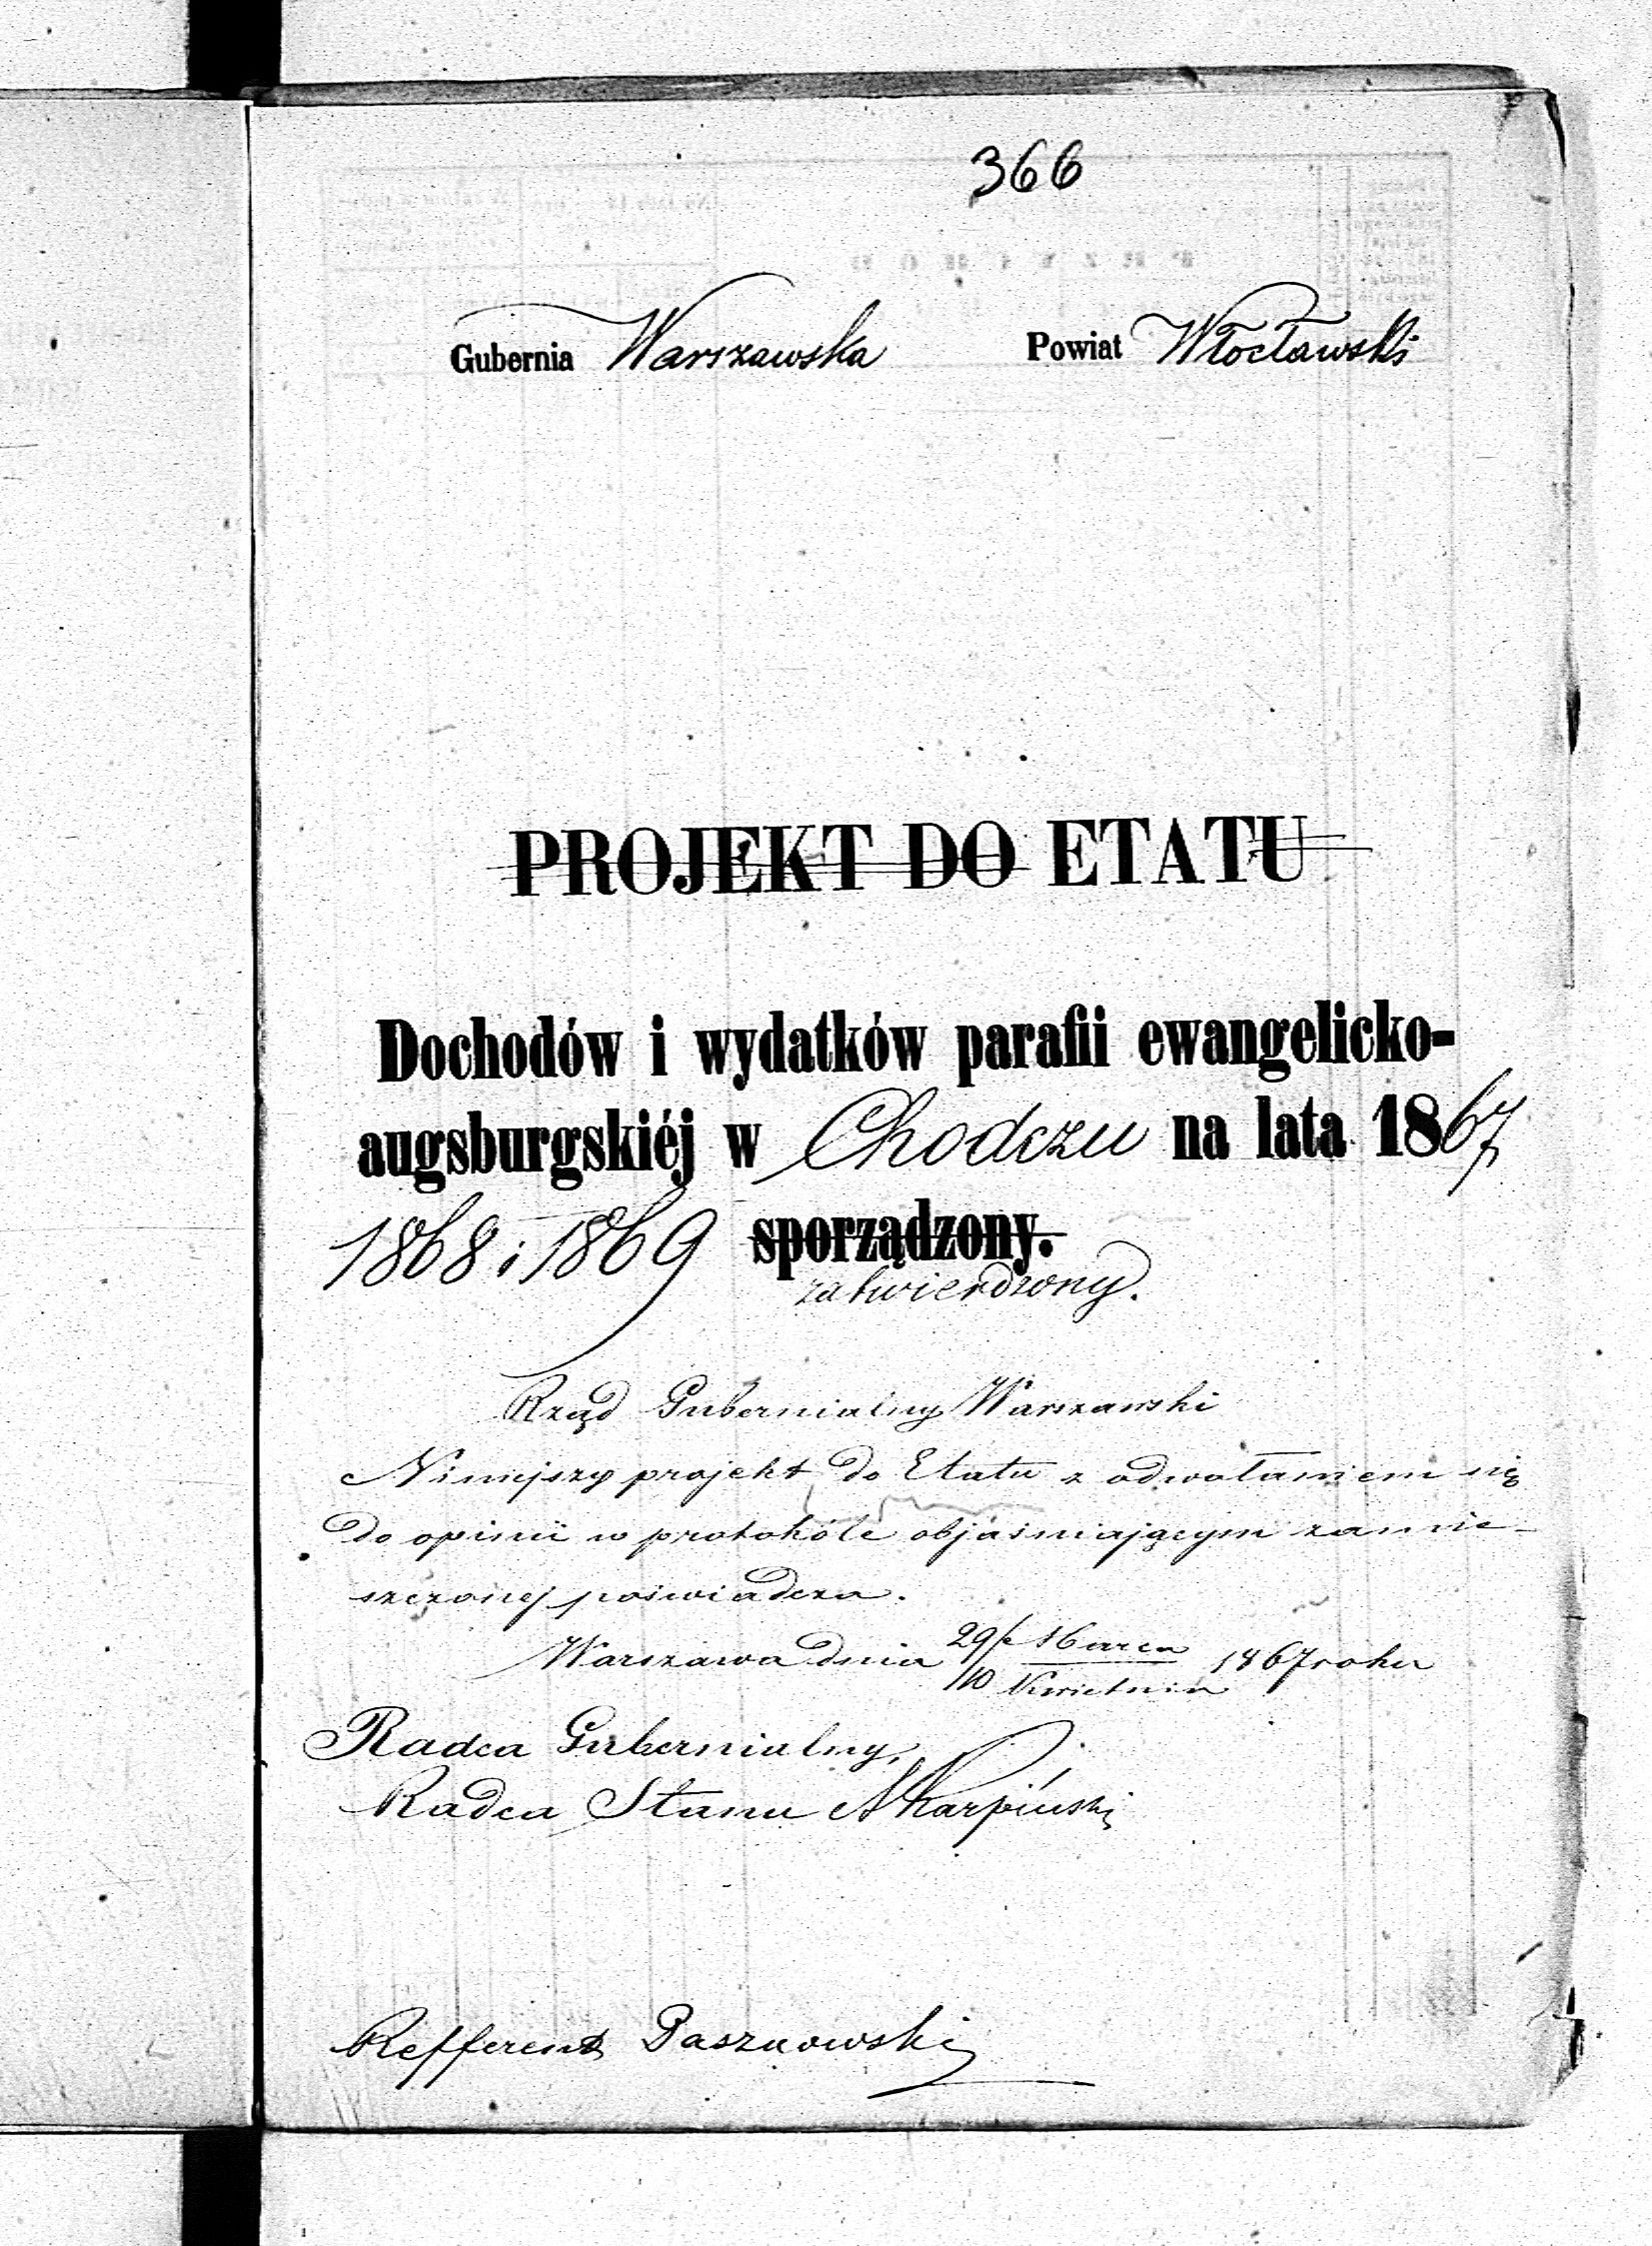 366
Gubernia Warszawska Powiat Włocławski
PROJEKT DO ETATU
Dochodów i wydatków parafii ewangelicko-
augsburgskiéj w Chodczu na lata 1867
1868 i 1869 sporządzony.
zatwierdzony.
Rząd Gubernialny Warszawski
Niniejszy projekt do Etatu z odwołaniem się
do opinii w protokóle objaśniającym zamie-
szczonej poświadcza.
Warszawa dnia 29/10 Marca/Kwietnia 1867 roku
Radca Gubernialny,
Radca Stanu Karpiński
Refferent Paszkowski